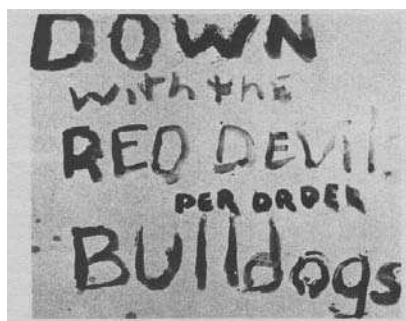 DOWN
with the
RED DEVIL
PER ORDER
BUlldogs